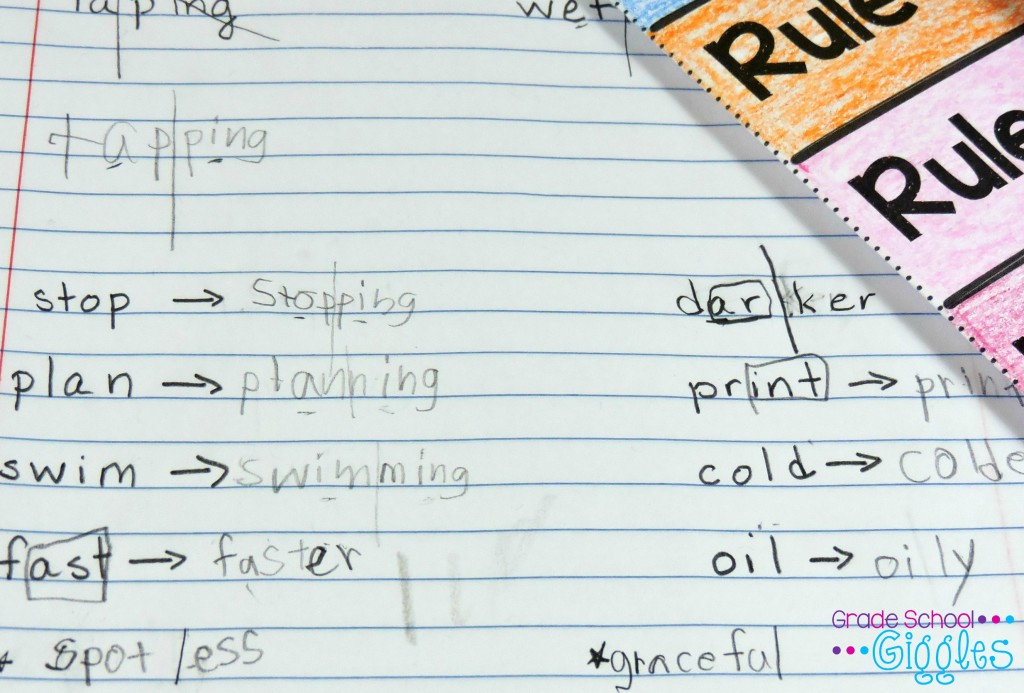 Tapping wet Rule
tapping Rule
stop → Stopping darker
plan → planning print → print
swim → swimming cold → colde
fast → faster oil → oily
spotless *graceful
Grade School
Giggles